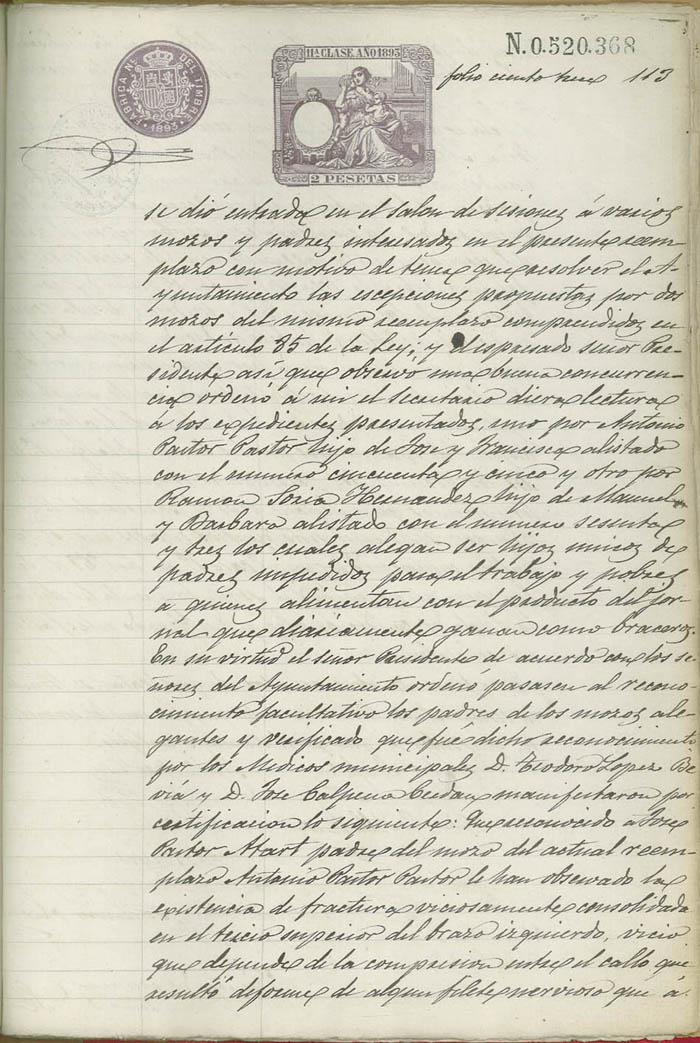 FABRICA NL. DEL TIMBRE
1893
11ª CLASE. AÑO 1893
2 PESETAS
N.0.520.368
folio ciento trece 113
se dió entrada en el salon de sesiones á varios
mozos y padres interesados en el presente reem-
plazo con motivo de tener que resolver el A-
yuntamiento las escepciones propuestas por dos
mozos del mismo reemplazo comprendidos en
el artículo 85 de la Ley; y el espresado señor Pre-
sidente así que observó una buena concurren-
cia ordenó á mi el secretario diera lectura
á los expedientes presentados, uno por Antonio
Pastor Pastor hijo de Jose y Francisca alistado
con el numero cincuenta y cinco y otro por
Ramon Soria Hernandez hijo de Manuel
y Barbara alistado con el numero sesenta
y tres los cuales alegan ser hijos unicos de
padres impedidos para el trabajo y pobres
a quienes alimentan con el producto del jor-
nal que diariamente ganan como braceros.
En su virtud el señor Presidente de acuerdo con los se-
ñores del Ayuntamiento ordenó pasasen al recono-
cimiento facultativo los padres de los mozos ale-
gantes y verificado que fué dicho reconocimiento
por los Medicos municipales D. Teodoro Lopez Be-
viá y D. Jose Calpena Cerdan manifestaron por
certificacion lo siguiente: Que reconocido a Jose
Pastor Atart padre del mozo del actual reem-
plazo Antonio Pastor Pastor le han observado la
existencia de fractura viciosamente consolidada
en el tercio superior del brazo izquierdo, vicio
que depende de la compresion entre el callo que
resultó deforme de algun filete nervioso que á